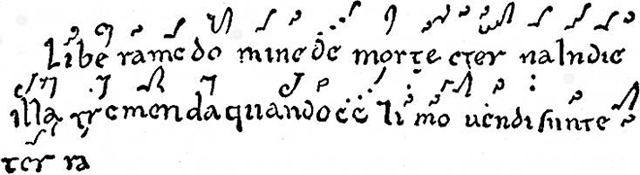 Libe ra me do mine de morte eter na In die
illa tremenda quando cę li mo uendi sunt e
ter ra